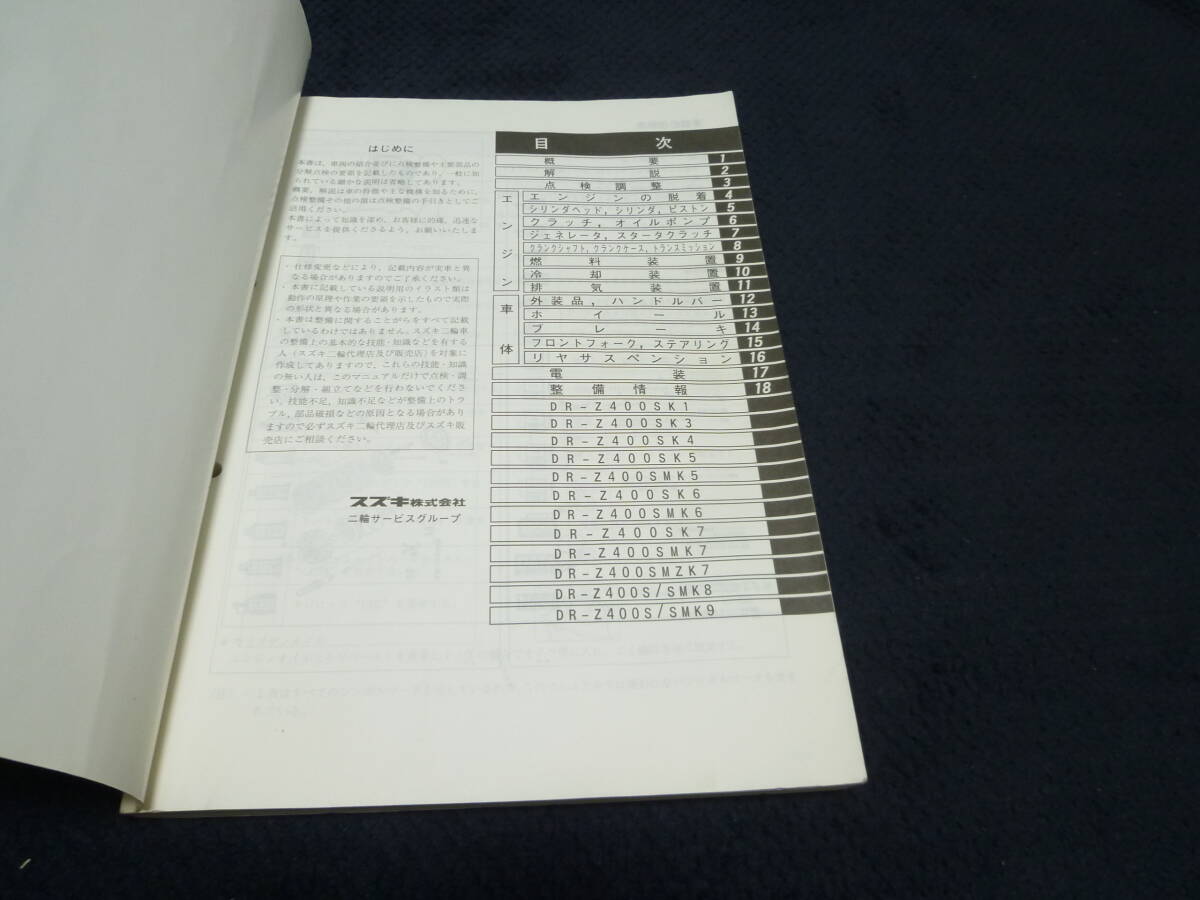 はじめに
本書は、車両の結合並びに点検整備や主要部品の
分解点検の要領を記載したものであり、一般に知
られている細かな説明は省略してあります。
概要、解説は車の特徴や主な機構を知るために、
点検整備その他の項は点検整備の手引きとしてご
活用ください。
本書によって知識を深め、お客様に的確、迅速な
サービスを提供くださるよう、お願いいたしま
す。
・仕様変更などにより、記載内容が実車と異
なる場合がありますのでご了承ください。
・本書に記載している説明用のイラスト類は
動作の原理や作業の要領を示したもので実際
の形状と異なる場合があります。
・本書は整備に関することがらをすべて記載
しているわけではありません。スズキ二輪車
の整備上の基本的な技能・知識などを有する
人(スズキ二輪代理店及び販売店)を対象に
作成してありますので、これらの技能・知識
の無い人は、このマニュアルだけで点検・調
整・分解・組立てなどを行わないでくださ
い。技能不足、知識不足などが整備上のトラ
ブル、部品破損などの原因となる場合があり
ますので必ずスズキ二輪代理店及びスズキ販
売店にご相談ください。
スズキ株式会社
二輪サービスグループ
目次
概要 1
解説 2
点検調整 3
エンジン
エンジンの脱着 4
シリンダヘッド, シリンダ, ピストン 5
クラッチ, オイルポンプ 6
ジェネレータ, スタータクラッチ 7
クランクシャフト, クランクケース, トランスミッション 8
燃料装置 9
冷却装置 10
排気装置 11
車体
外装品, ハンドルバー 12
ホイール 13
ブレーキ 14
フロントフォーク, ステアリング 15
リヤサスペンション 16
電装 17
整備情報 18
DR-Z400SK1
DR-Z400SK3
DR-Z400SK4
DR-Z400SK5
DR-Z400SMK5
DR-Z400SK6
DR-Z400SMK6
DR-Z400SK7
DR-Z400SMK7
DR-Z400SMZK7
DR-Z400S/SMK8
DR-Z400S/SMK9